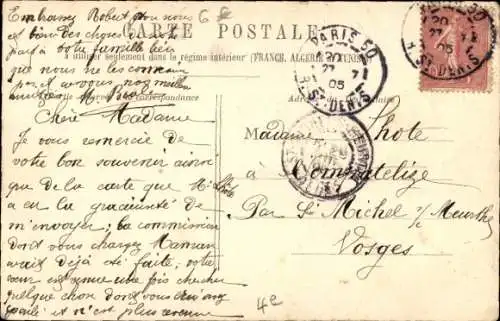 Embrassez Robert pour nous
et bien des choses de notre
part à votre famille bien
que nous ne les connaissons
CARTE POSTALE
à utiliser seulement dans le régime intérieur (FRANCE, ALGÉRIE et TUNISIE)
correspondance
PARIS 50
20
27 7
05
R. St DENIS
PARIS 50
20
27 7
05
R. St DENIS
Chère Madame
Je vous remercie de
votre bon souvenir ainsi
que de la carte que M. Shote
a eu la gracieuseté de
m'envoyer; la commission
dont vous chargez Maman
avait déjà été faite, votre
est venue une fois chercher
quelque chose dont vous lui avez
parlé et n'est plus revenue
Madame Shote
à Commatelize
Par St Michel s/ Meurthe
Vosges
4e